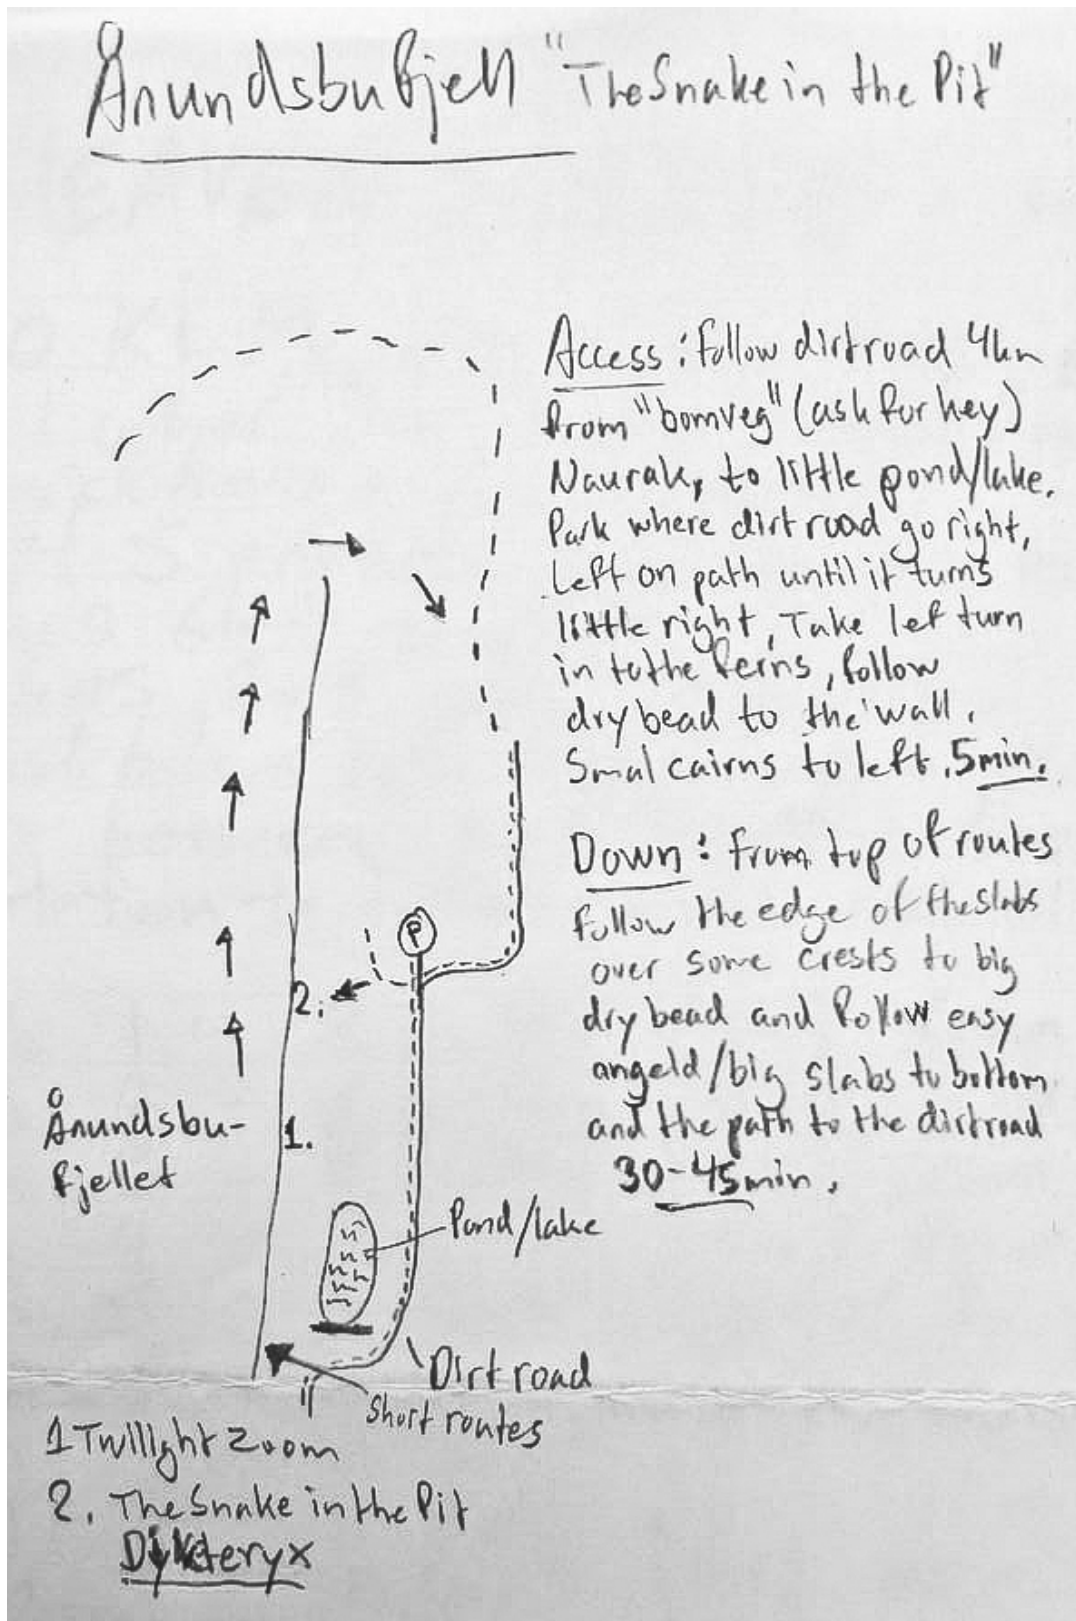 Ånundsbufjell "The Snake in the Pit"
Access: Follow dirtroad 4km
from "bomveg" (ask for key)
Naurak, to little pond/lake.
Park where dirtroad go right,
Left on path until it turns
little right, Take lef turn
in to the ferns, follow
dry bead to the wall.
Smal cairns to left. 5min.
Down: From top of routes
follow the edge of the slabs
over some crests to big
dry bead and follow easy
angeld/big slabs to bottom
and the path to the dirtroad
30-45min.
P
2.
Ånundsbu-
fjellet
1.
Pond/lake
Dirtroad
Short routes
1 Twilight Zoom
2. The Snake in the Pit